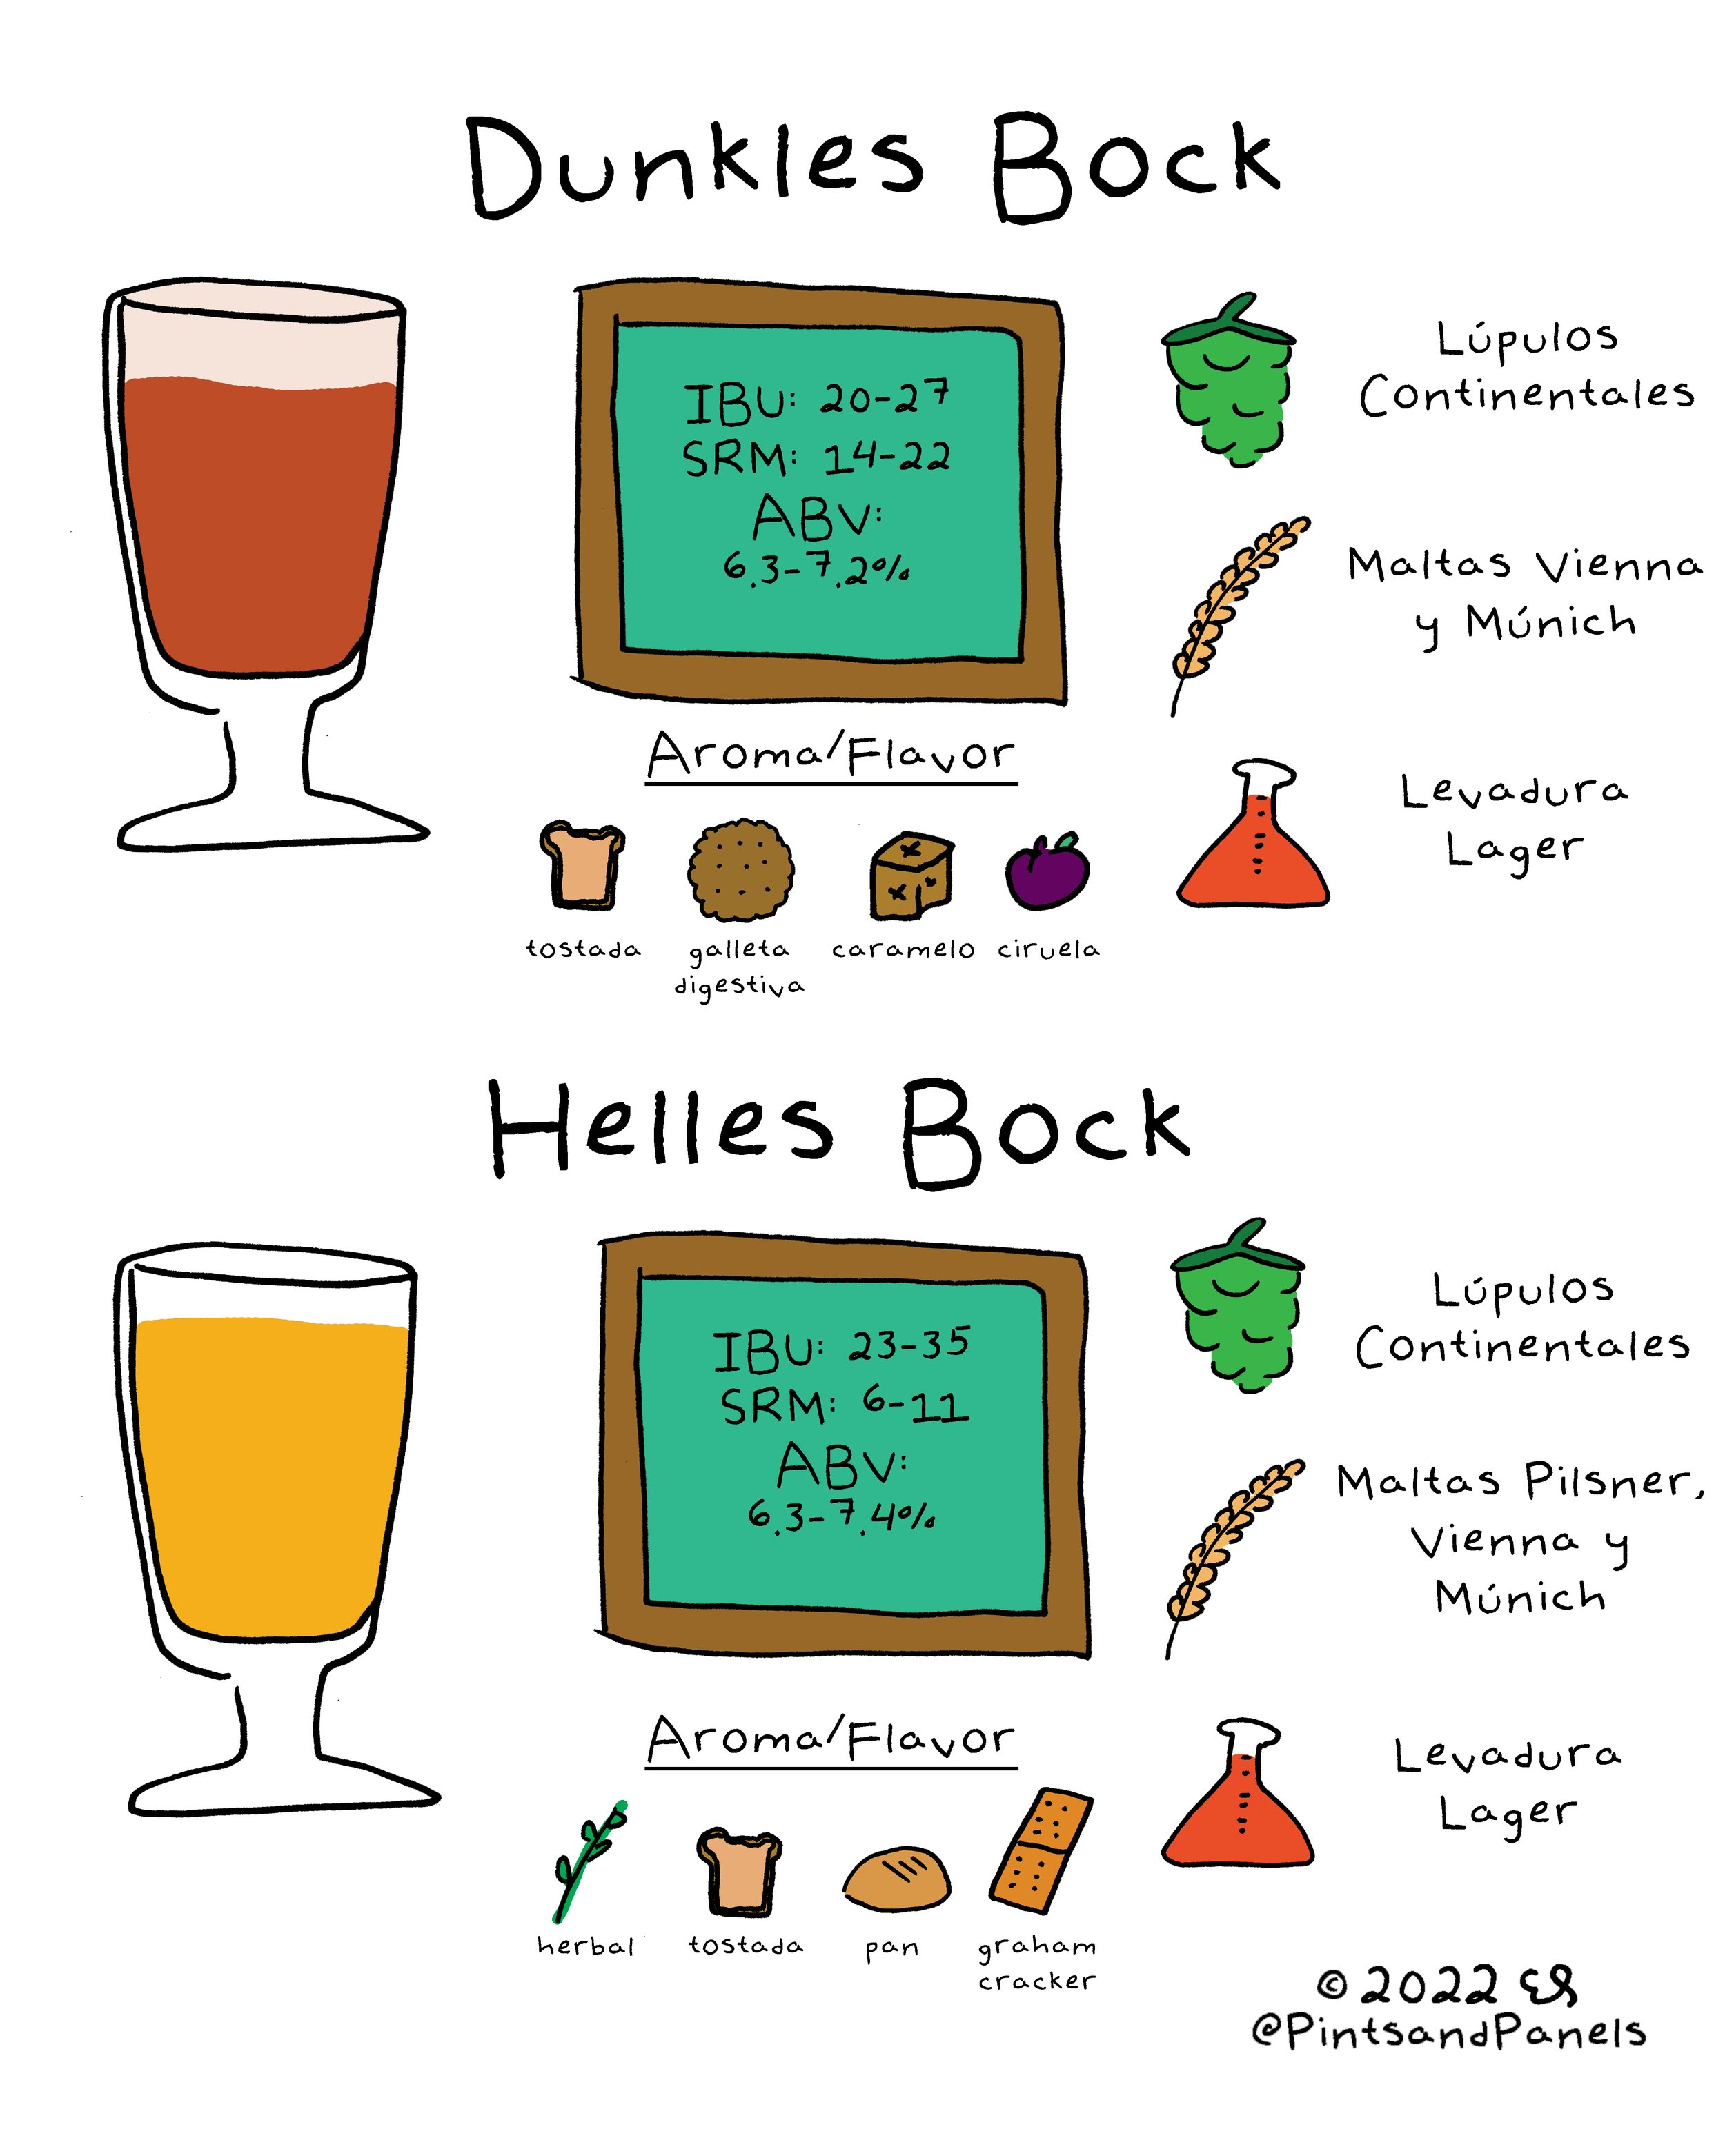 Dunkles Bock
IBU: 20-27
SRM: 14-22
ABV:
6.3-7.2%
Lúpulos
Continentales
Maltas Vienna
y Múnich
Levadura
Lager
Aroma/Flavor
tostada
galleta
digestiva
caramelo
ciruela
Helles Bock
IBU: 23-35
SRM: 6-11
ABV:
6.3-7.4%
Lúpulos
Continentales
Maltas Pilsner,
Vienna y
Múnich
Levadura
Lager
Aroma/Flavor
herbal
tostada
pan
graham
cracker
© 2022 ES
@PintsandPanels